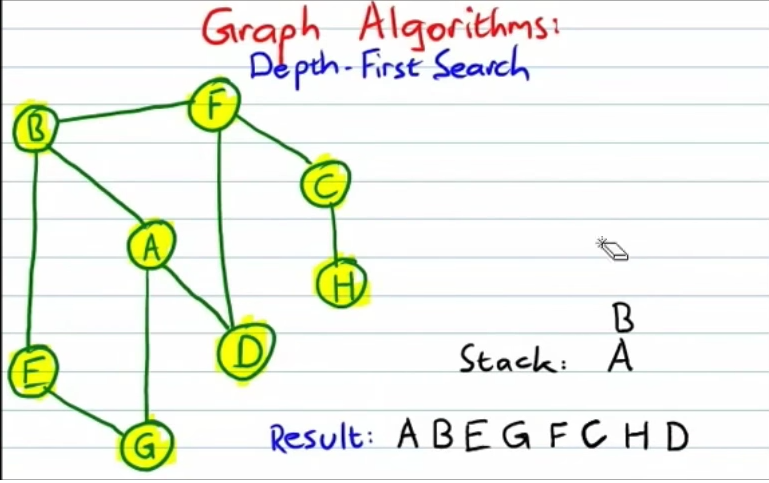 Graph Algorithms:
Depth-First Search
F
B
C
A
H
B
D
Stack: A
E
G
Result: A B E G F C H D